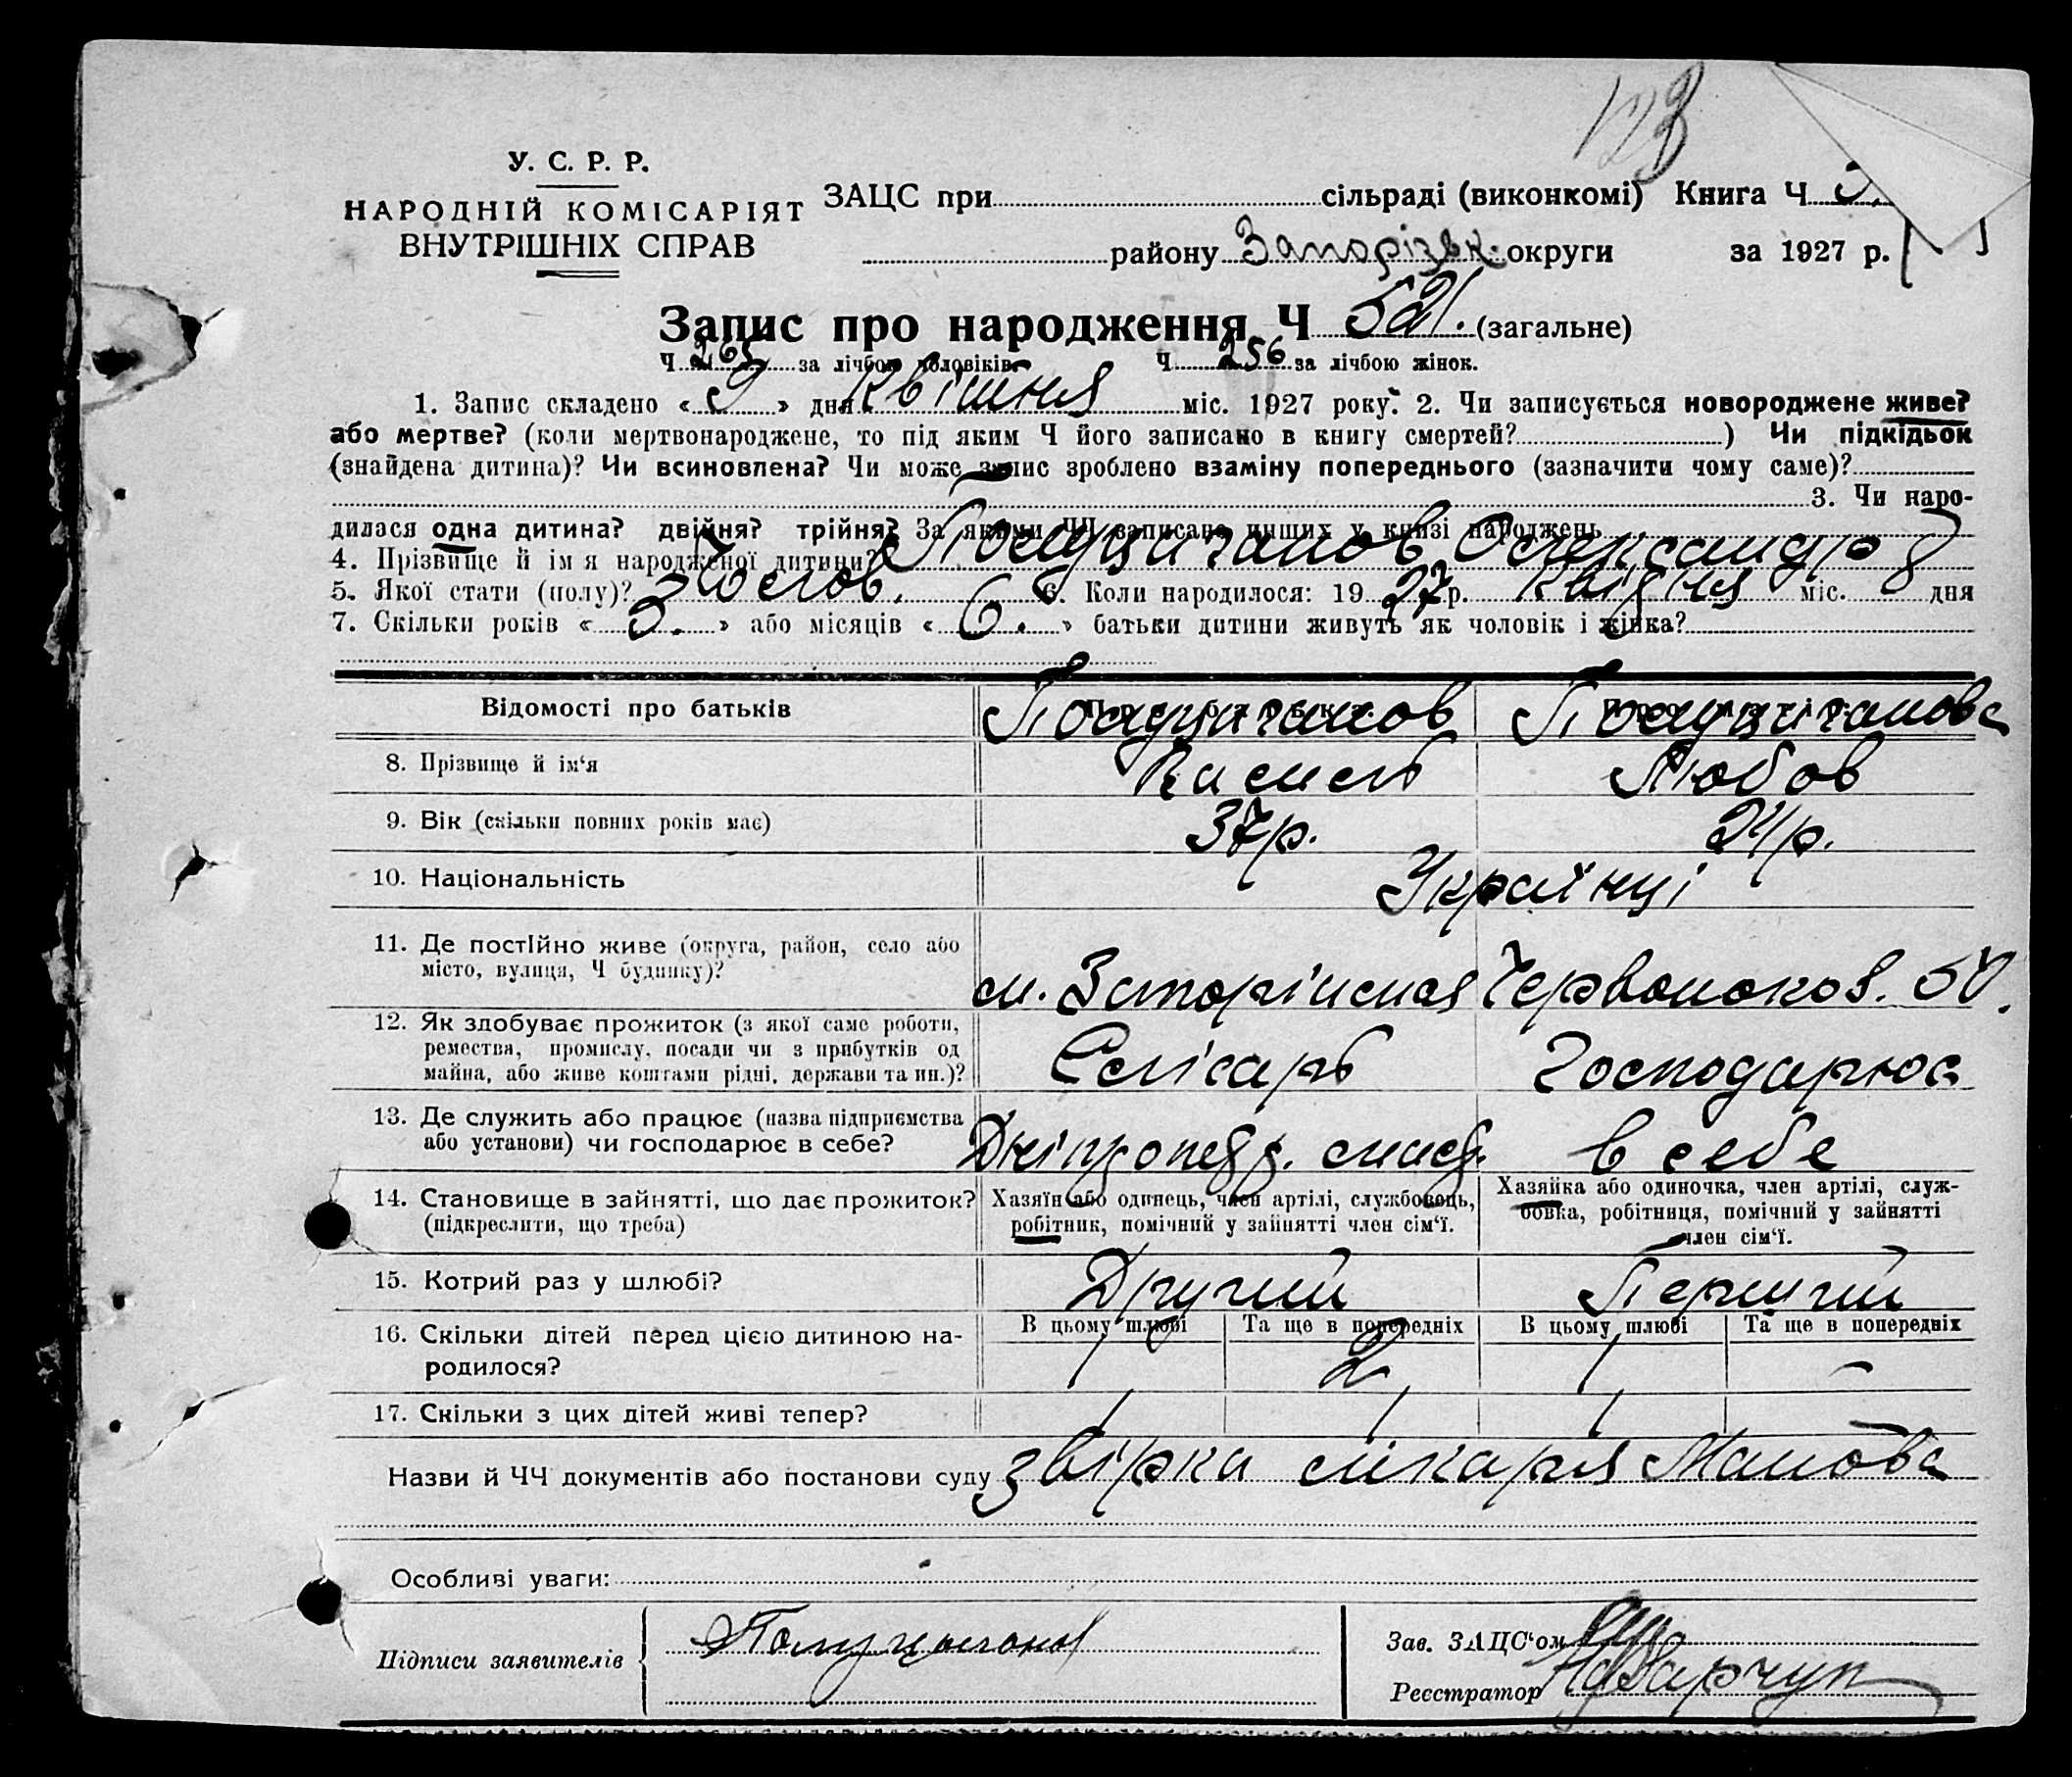 123
У. С. Р. Р.
НАРОДНІЙ КОМІСАРІЯТ
ВНУТРІШНІХ СПРАВ
ЗАЦС при сільраді (виконкомі) Книга Ч 3.
району Запорізьк. округи за 1927 р.
Запис про народження Ч 521. (загальне)
Ч 265 за лічбою чоловіків. Ч 256 за лічбою жінок.
1. Запис складено « 9 » дня Квітня міс. 1927 року. 2. Чи записується новороджене живе?
або мертве? (коли мертвонароджене, то під яким Ч його записано в книгу смертей? ) Чи підкідьок
(знайдена дитина)? Чи всиновлена? Чи може запис зроблено взаміну попереднього (зазначити чому саме)?
3. Чи наро-
дилася одна дитина? двійня? трійня? За якими ЧЧ записано инших у книзі народжень
4. Прізвище й ім я народженої дитини? Полуциганов Олександр
5. Якої стати (полу)? Чолов. 6. Коли народилося: 19 27 р. Квітня міс. 8 дня
7. Скільки років « 3. » або місяців « 6. » батьки дитини живуть як чоловік і жінка?
Відомості про батьків
Полуциганов Полуциганова
8. Прізвище й ім‘я Василь Любов
9. Вік (скільки повних років має) 37р. 24р.
10. Національність Українці
11. Де постійно живе (округа, район, село або
місто, вулиця, Ч будинку)? м. Запоріжжя Червонокоз. 50.
12. Як здобуває прожиток (з якої саме роботи,
ремества, промислу, посади чи з прибутків од
майна, або живе коштами рідні, держави та ин.)? Слісарь Господарює
13. Де служить або працює (назва підприємства
або установи) чи господарює в себе? в себе
14. Становище в зайнятті, що дає прожиток?
(підкреслити, що треба)
Хазяїн або одинець, член артілі, службовець,
робітник, помічний у зайнятті член сім‘ї.
Хазяйка або одиночка, член артілі, служ-
бовка, робітниця, помічний у зайнятті
член сім‘ї.
15. Котрий раз у шлюбі? Другий Перший
16. Скільки дітей перед цією дитиною на-
родилося?
В цьому шлюбі Та ще в попередніх В цьому шлюбі Та ще в попередніх
1 2 1 –
17. Скільки з цих дітей живі тепер? 1 1 1
Назви й ЧЧ документів або постанови суду звірка лікаря
Особливі уваги:
Підписи заявителів Полуцыганов
Зав. ЗАЦС‘ом
Реєстратор